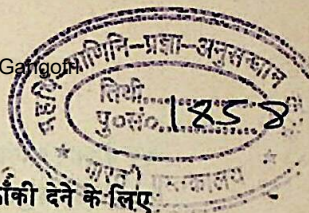 Gangotri
महर्षि पाणिनि-प्रज्ञा-अनुसन्धान
तिथी..........
पु०सं० 1858
झाँकी देने के लिए